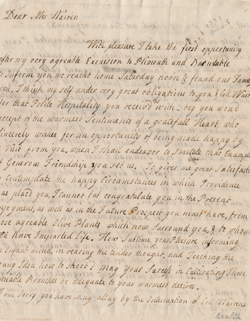 Dear Mrs Warren
With pleasure I take the first opportunity
after my very agreable Excursion to Plimouth and Barnstable
to Inform you we reacht home Saturday noon & found our Fam
well, I think my self under very great obligations to you & Col Warren
for that Polite Hospitality you received with, beg you woud
accept of the warmest Sentiments of a gratefull Heart who
Sincerely wishes for an opportunity of being made happy by
a Visit from you, when I shall endeavor to Imitate that Example
of Generous Friendship you set us. It gives me great Satisfaction
to Contemplate the Happy Circumstances in which Providence
has placed you, I cannot but congratulate you in the Present
enjoyment as well as in the Future Prospect you must have, from
the agreable Olive Plants which now Surround you, & to whom
you have Imparted Life. How Sublime your Pleasure in forming
the tender thought, and Teaching the
young Idea how to shoot. May your Success in cultivating those
amiable Branches be adequate to your warmest desires.
I am Sorry you have any allay by the Indisposition of Col Warrens
Health